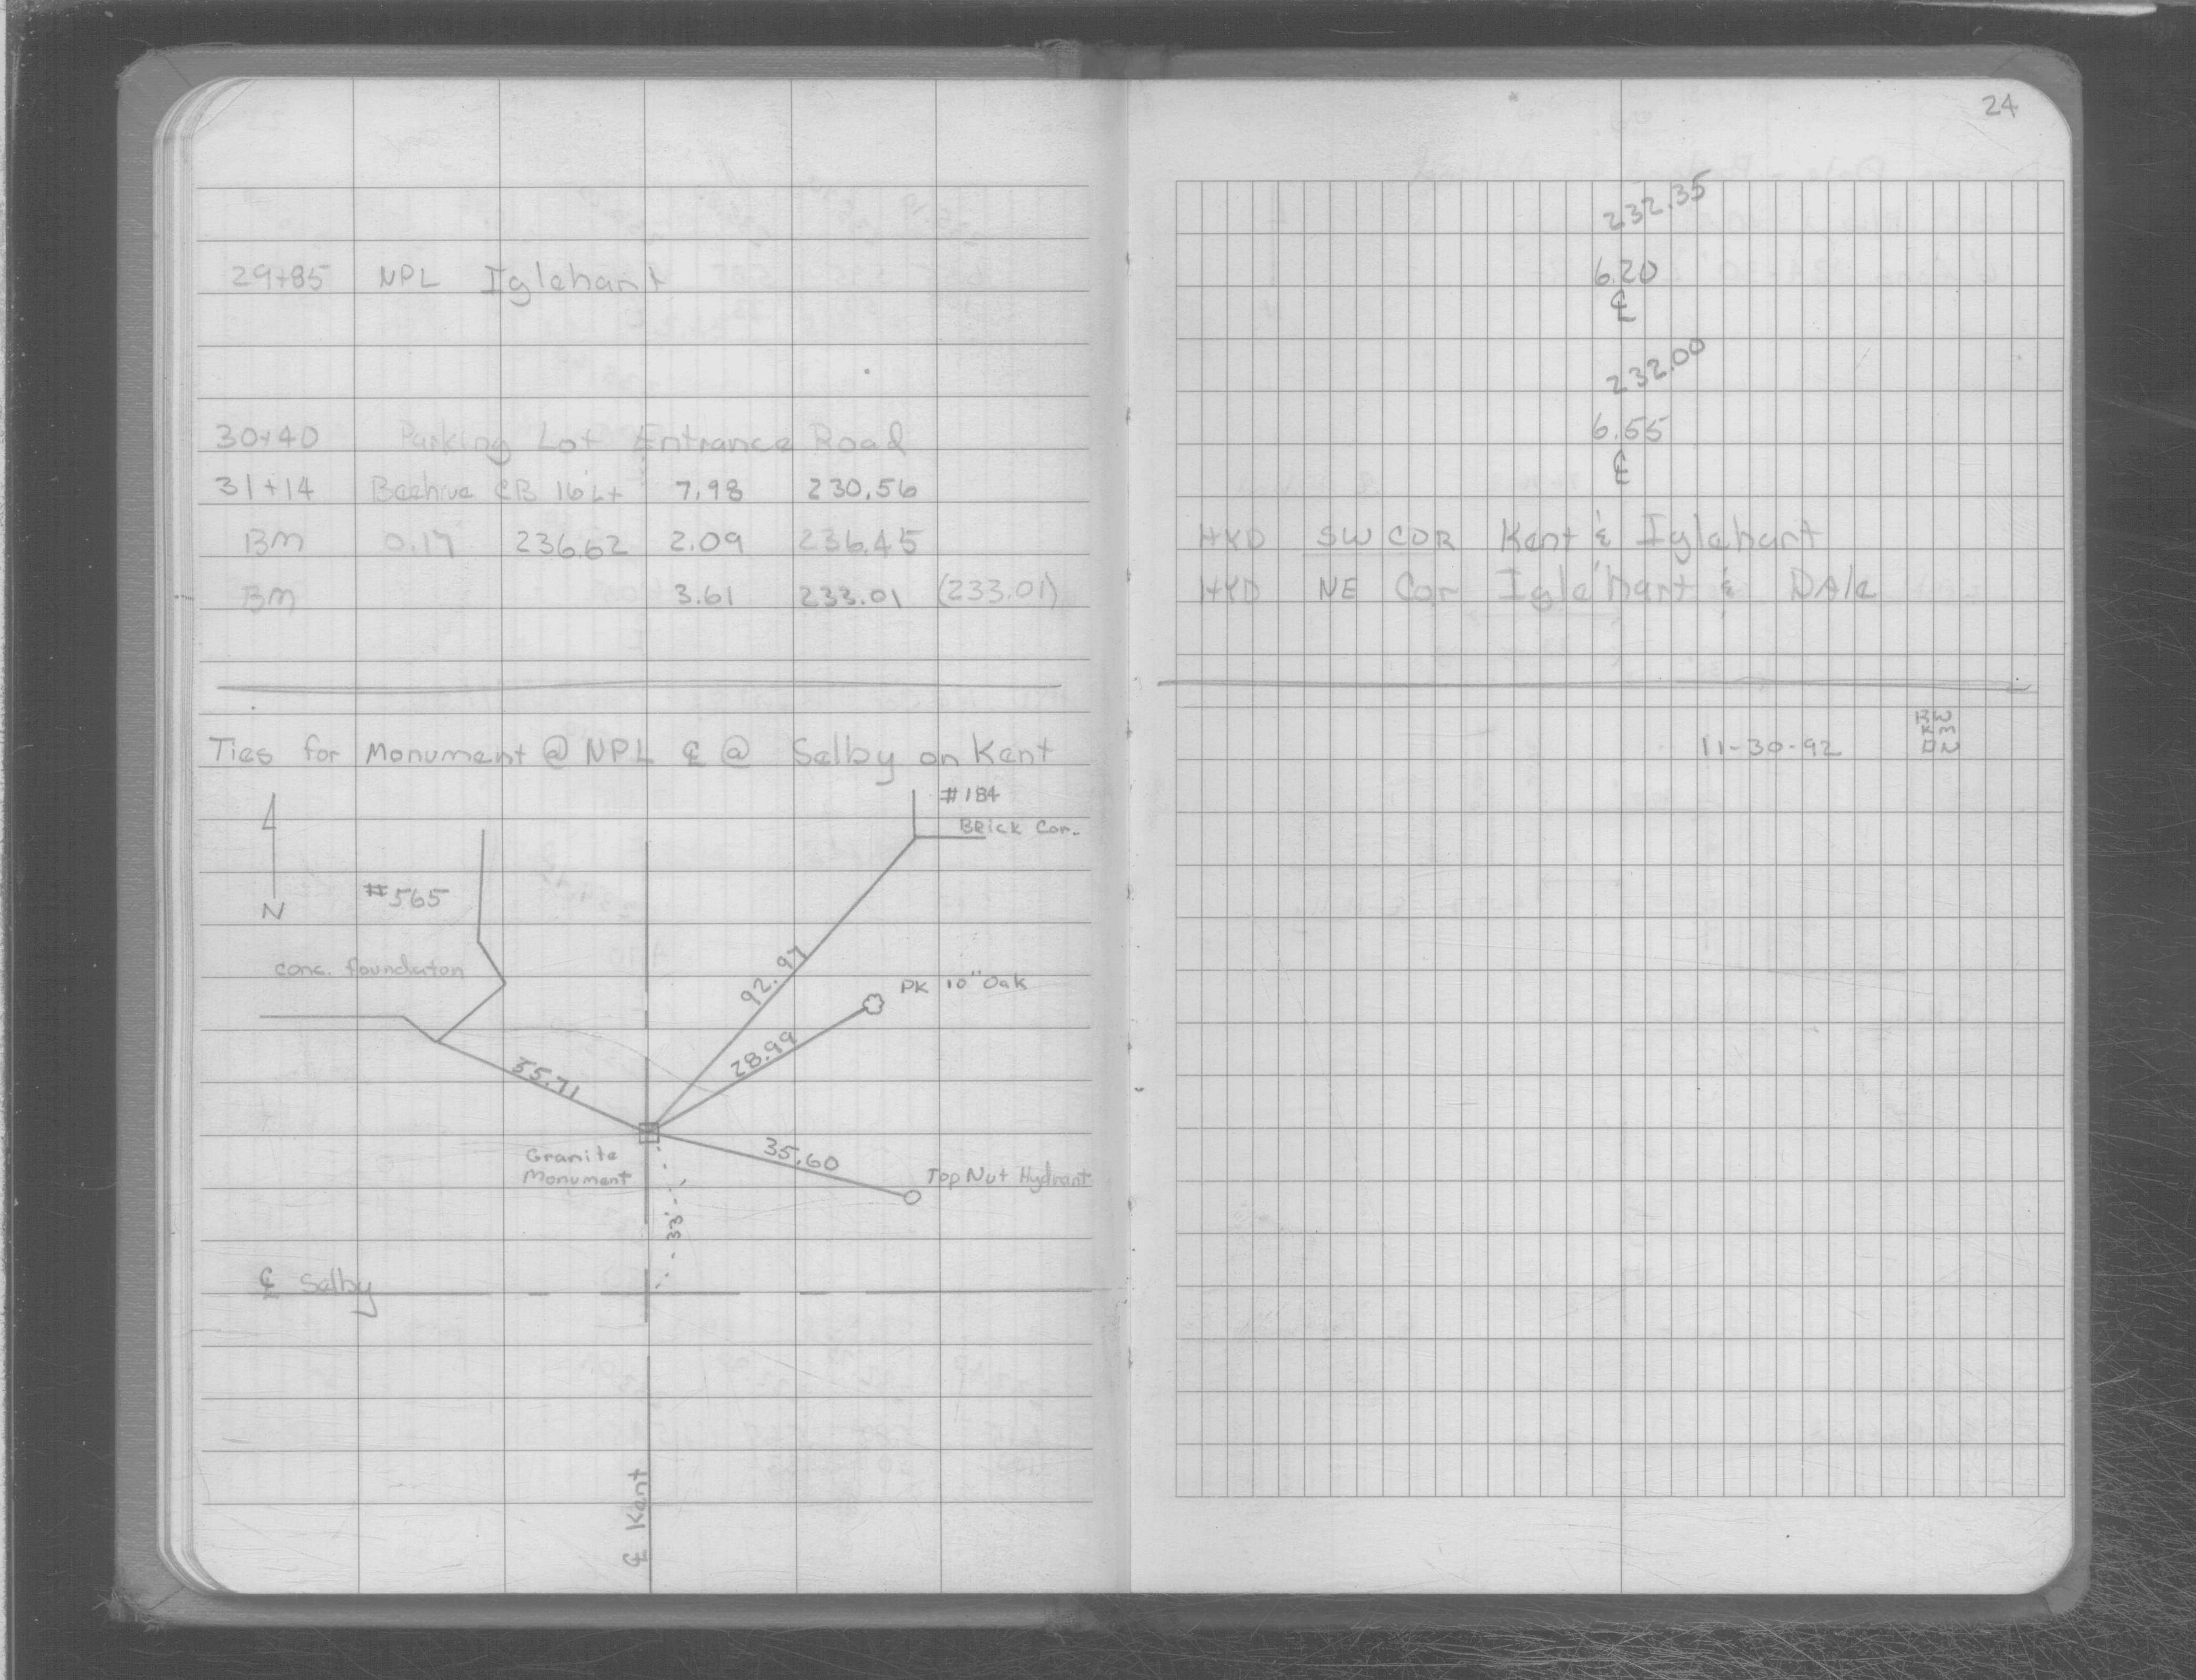 29+85 NPL Iglehart
30+40 Parking Lot Entrance Road
31+14 Beehive CB 16' Lt 7.98 230.56
BM 0.17 236.62 2.09 236.45
BM 3.61 233.01 (233.01)
Ties for Monument @ NPL ℄ @ Selby on Kent
#184
Brick Cor.
N
#565
conc. foundaton
92.97
PK 10" Oak
28.99
35.71
Granite
Monument
35.60
Top Nut Hydrant
33'
℄ Selby
℄ Kent
24
232.35
6.20
℄
232.00
6.55
℄
HYD SW COR Kent & Iglehart
HYD NE Cor Iglehart & DAle
11-30-92
RW
KM
DN